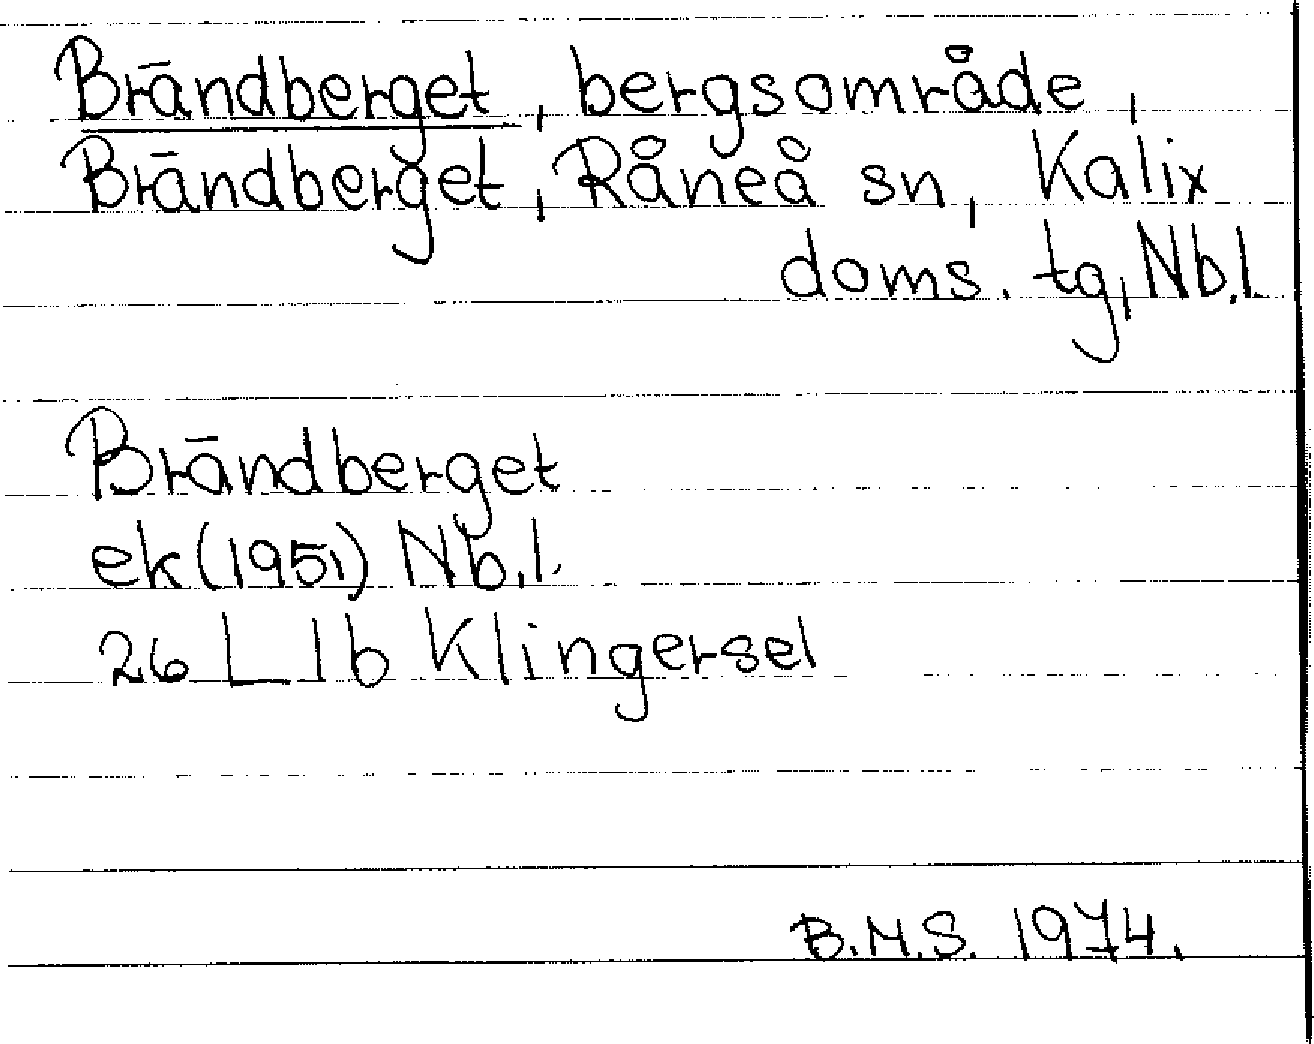 Brändberget, bergsområde,
Brändberget, Råneå sn, Kalix
doms. tg, Nb.l.
Brändberget
ek (1951) Nb.l.
26 L 1b Klingersel
B.M.S. 1974.